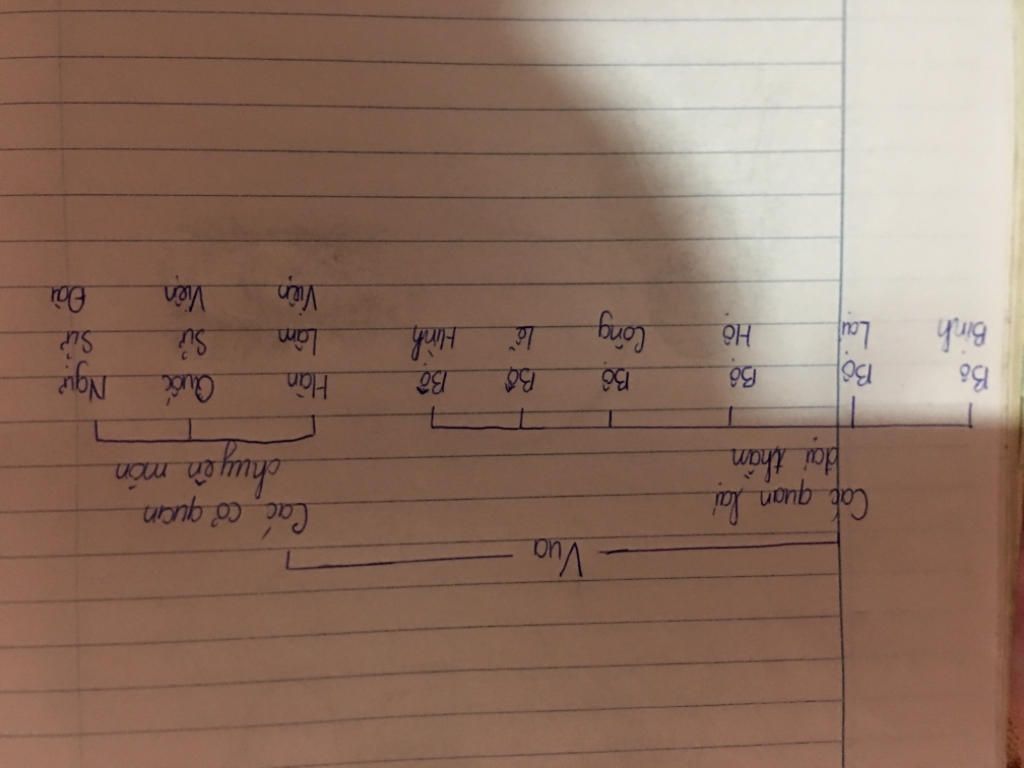 Vua
Các quan lại
đại thần
Các cơ quan
chuyên môn
Bộ
Binh
Bộ
Lại
Bộ
Hộ
Bộ
Công
Bộ
Lễ
Bộ
Hình
Hàn
Lâm
Viện
Quốc
Sử
Viện
Ngự
Sử
Đài